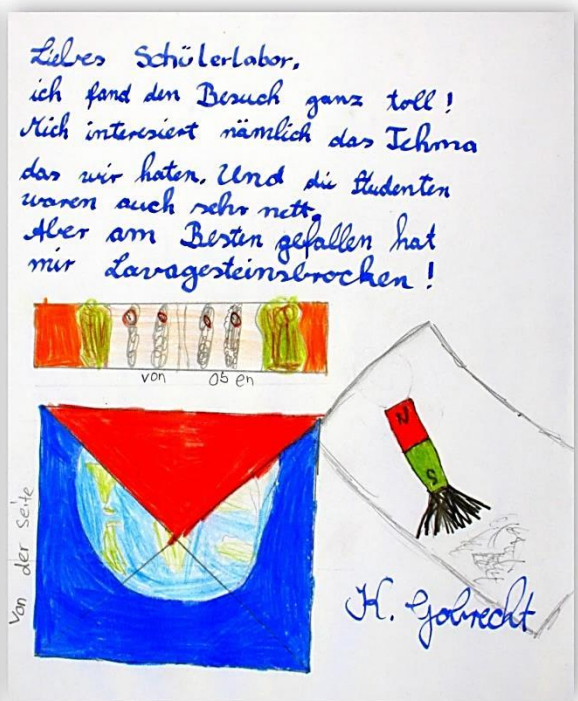 Liebes Schülerlabor,
ich fand den Besuch ganz toll!
Mich interesiert nämlich das Tehma
das wir haten. Und die Studenten
waren auch sehr nett.
Aber am Besten gefallen hat
mir Lavagesteinsbrocken!
von oben
von der Seite
N
S
K. Gobrecht